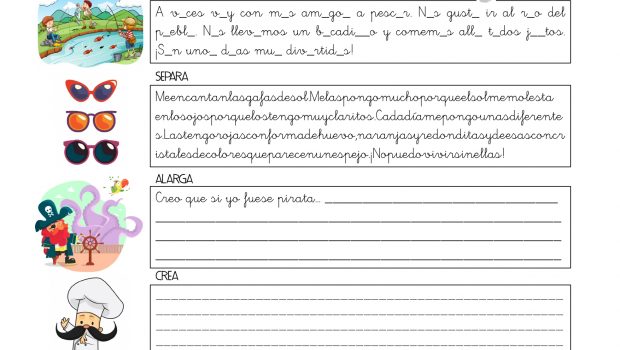 A v_ces v_y con m_s am_go_ a pesc_r. N_s gust_ ir al r_o del
p_ebl_. N_s llev_mos un b_cadi__o y comem_s all_ t_dos j__tos.
¡S_n uno_ d_as mu_ div_rtid_s!
SEPARA
Meencantanlasgafasdesol.Melaspongomuchoporqueelsolmemolesta
enlosojosporquelostengomuyclaritos.Cadadíamepongounasdiferente
s.Lastengorojasconformadehuevo,naranjasyredonditasydeesasconcr
istalesdecoloresqueparecenunespejo.¡Nopuedovivirsinellas!
ALARGA
Creo que si yo fuese pirata...
CREA